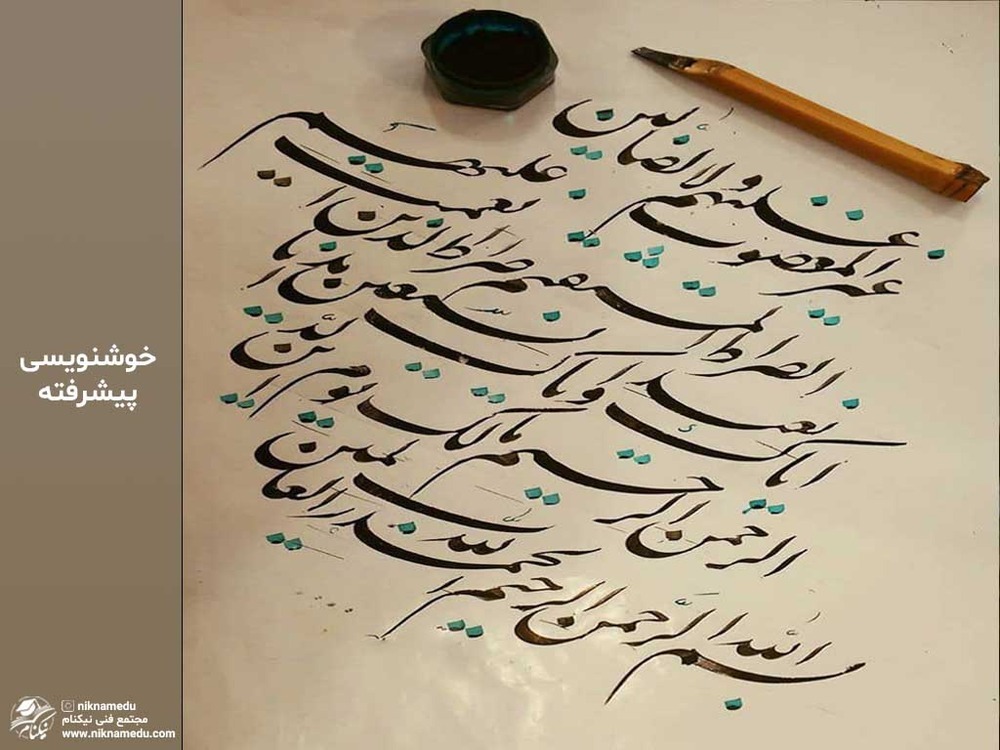 بسم الله الرحمن الرحیم
الحمد لله رب العالمین
الرحمن الرحیم مالک یوم الدین
ایاک نعبد و ایاک نستعین اهدنا
الصراط المستقیم صراط الذین انعمت علیهم
غیر المغضوب علیهم ولا الضالین
خوشنویسی
پیشرفته
niknamedu
مجتمع فنی نیکنام
www.niknamedu.com
نیکنام